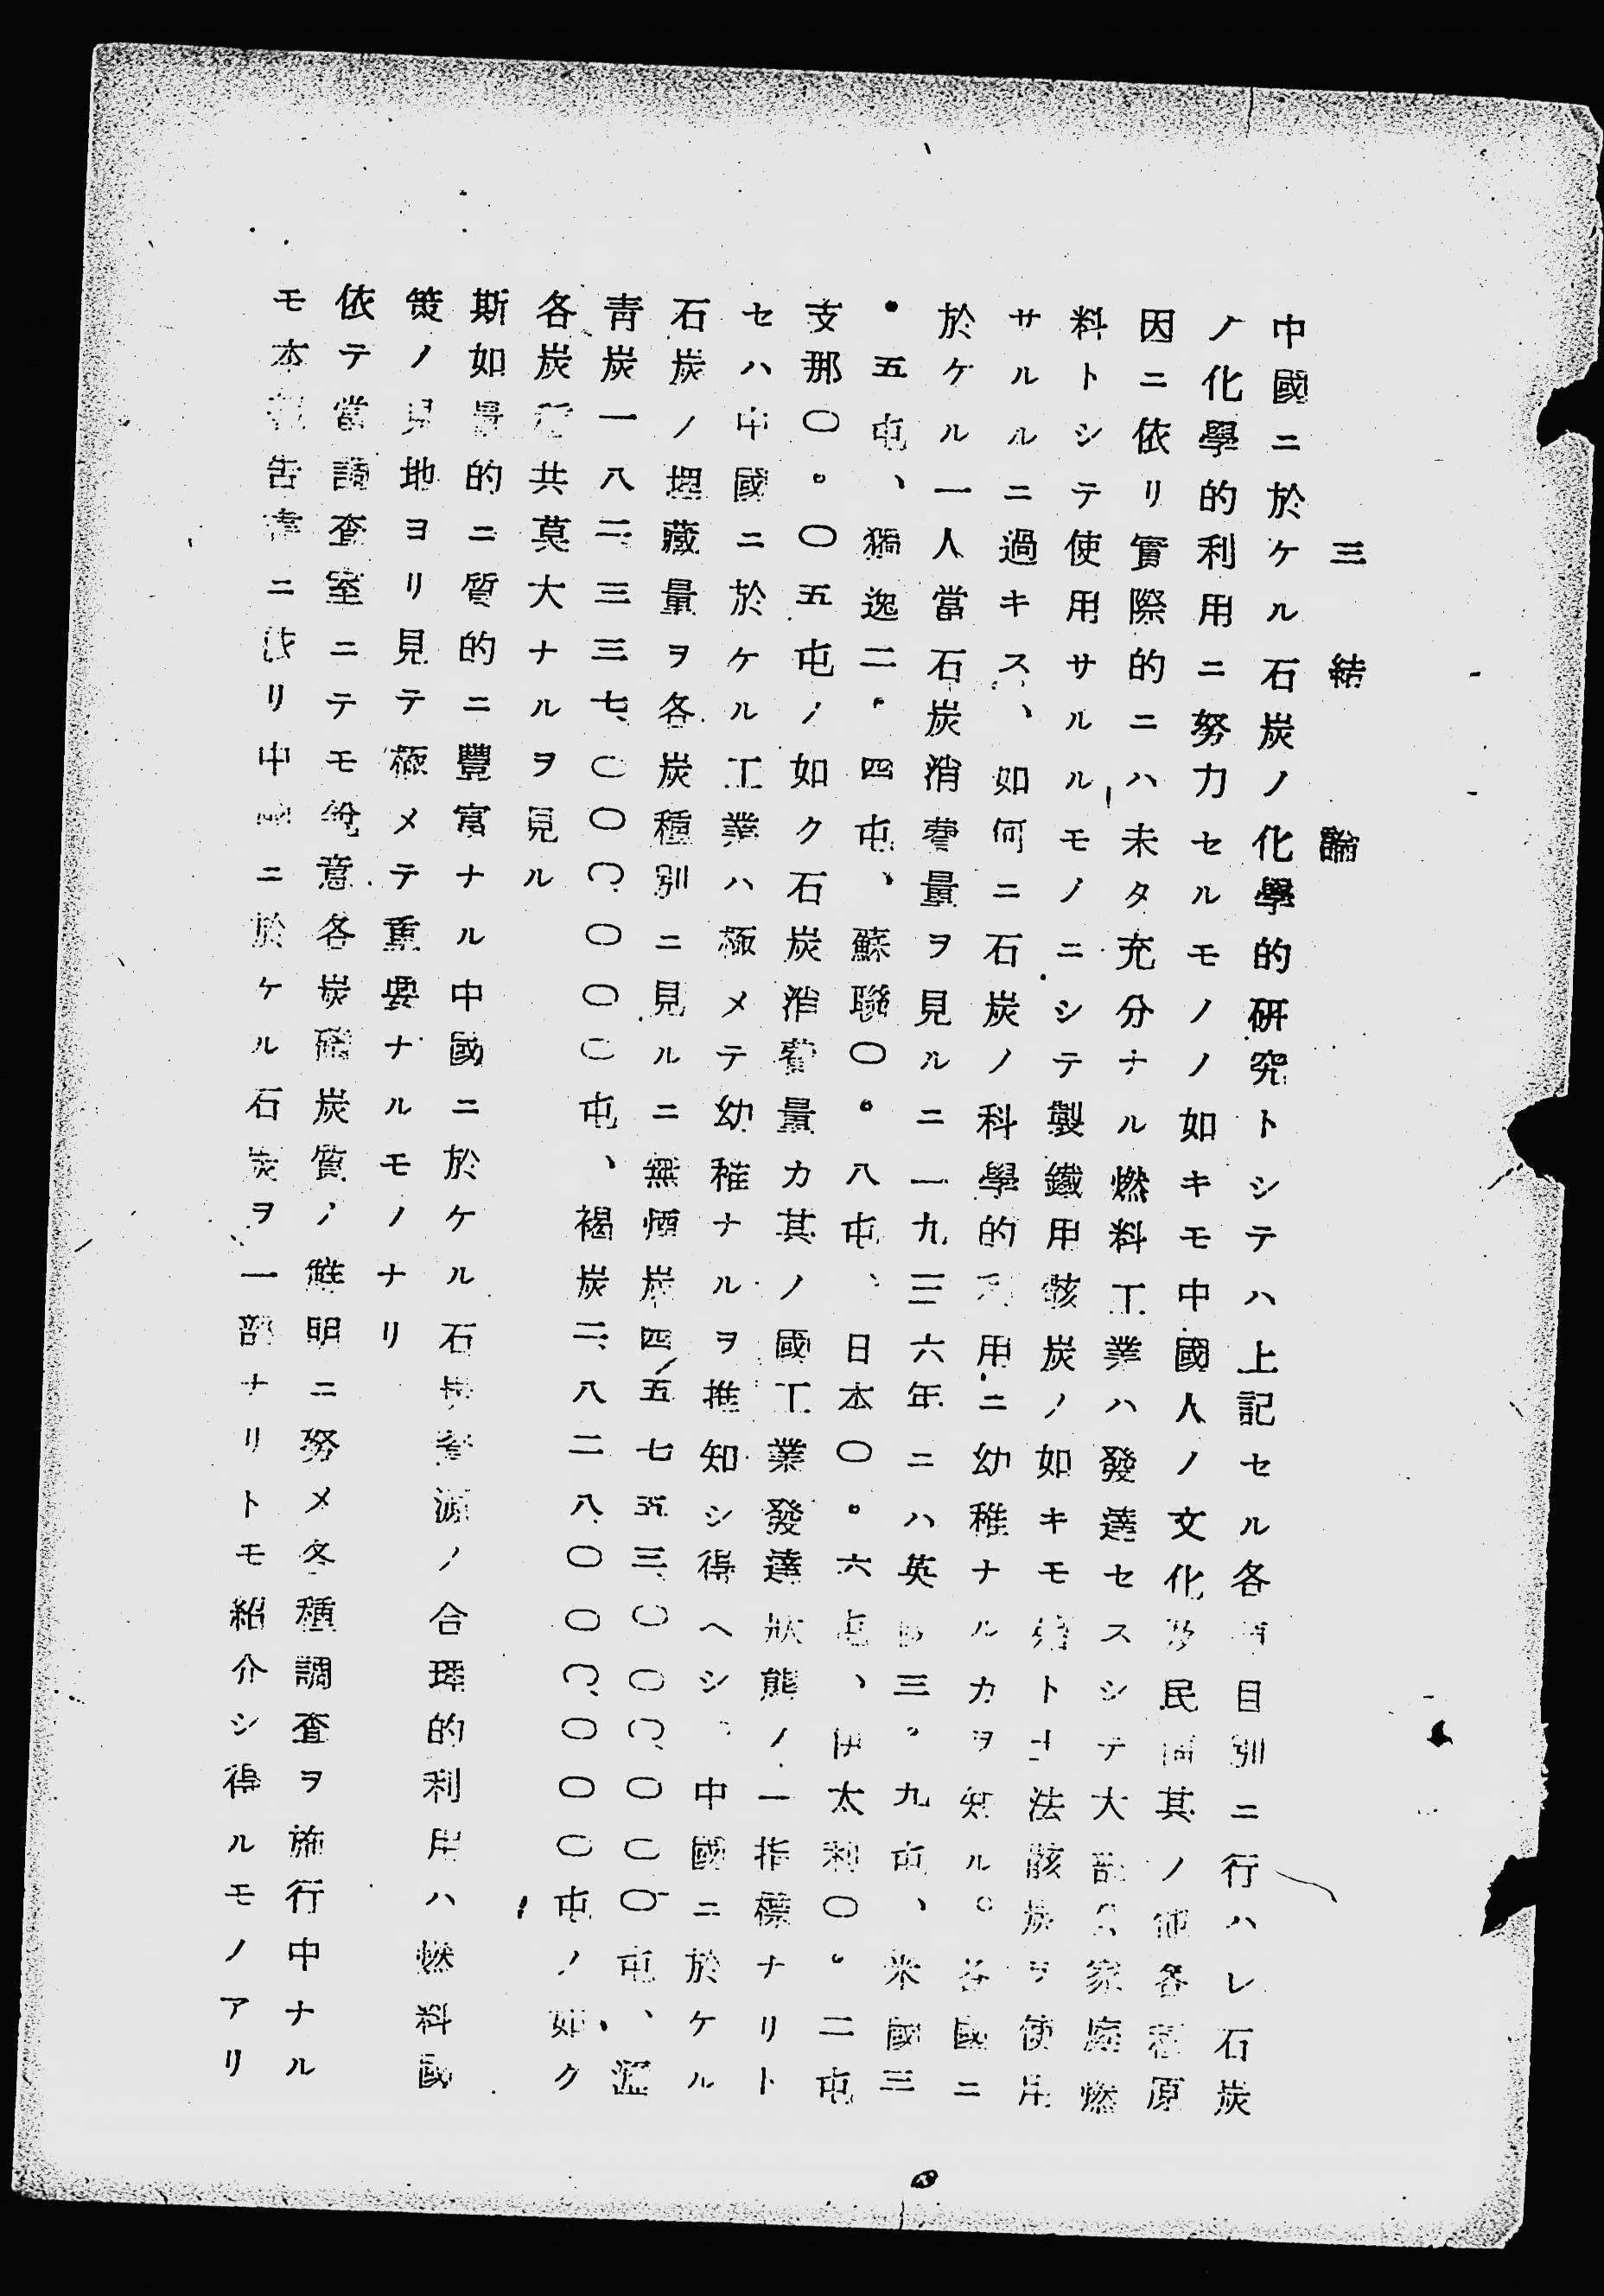 三　結　論
中國ニ於ケル石炭ノ化學的研究トシテハ上記セル各項目別ニ行ハレ石炭
ノ化學的利用ニ努力セルモノノ如キモ中國人ノ文化及民間其ノ他各種原
因ニ依リ實際的ニハ未タ充分ナル燃料工業ハ發達セスシテ大部分家庭燃
料トシテ使用サルルモノニシテ製鐵用骸炭ノ如キモ殆ト土法骸炭ヲ使用
サルルニ過キス、如何ニ石炭ノ科學的利用ニ幼稚ナルカヲ知ル。各國ニ
於ケル一人當石炭消費量ヲ見ルニ一九三六年ニハ英國三。九屯、米國三
・五屯、獨逸二・四屯、蘇聯〇。八屯、日本〇。六屯、伊太利〇。二屯
支那〇。〇五屯ノ如ク石炭消費量カ其ノ國工業發達狀態ノ一指標ナリト
セハ中國ニ於ケル工業ハ極メテ幼稚ナルヲ推知シ得ヘシ　中國ニ於ケル
石炭ノ埋藏量ヲ各炭種別ニ見ルニ無煙炭四五、七五三、〇〇〇、〇〇〇屯、瀝
青炭一八二、三三七、〇〇〇、〇〇〇屯、褐炭二、八二八、〇〇〇、〇〇〇屯ノ如ク
各炭種共莫大ナルヲ見ル
斯如量的ニ質的ニ豐富ナル中國ニ於ケル石炭資源ノ合理的利用ハ燃料國
策ノ見地ヨリ見テ極メテ重要ナルモノナリ
依テ當調査室ニテモ銳意各炭礦炭質ノ鮮明ニ努メ各種調査ヲ施行中ナル
モ本報告書ニ依リ中國ニ於ケル石炭ヲ一部ナリトモ紹介シ得ルモノアリ